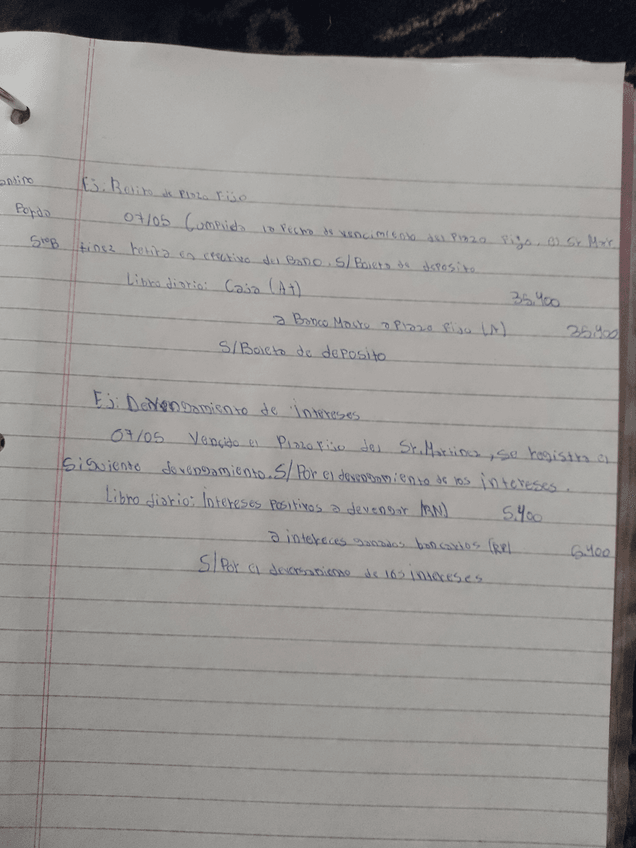 Ej: Retiro de Plazo Fijo
Pordo
07/05 Cumplida la fecha de vencimiento del Plazo Fijo, el Sr Mar
tinez retira en efectivo del Banco. S/Boleta de deposito
Libro diario: Caja (A+) 35.400
a Banco Macro a Plazo Fijo (A) 35.400
S/Boleta de deposito
Ej: Devengamiento de intereses
07/05 Vencido el Plazo Fijo del Sr. Martinez, se registra el
siguiente devengamiento. S/Por el devengamiento de los intereses.
Libro diario: Intereses Positivos a devengar (RN) 5.400
a intereces ganados bancarios (RP) 5.400
S/Por el devengamiento de los intereses